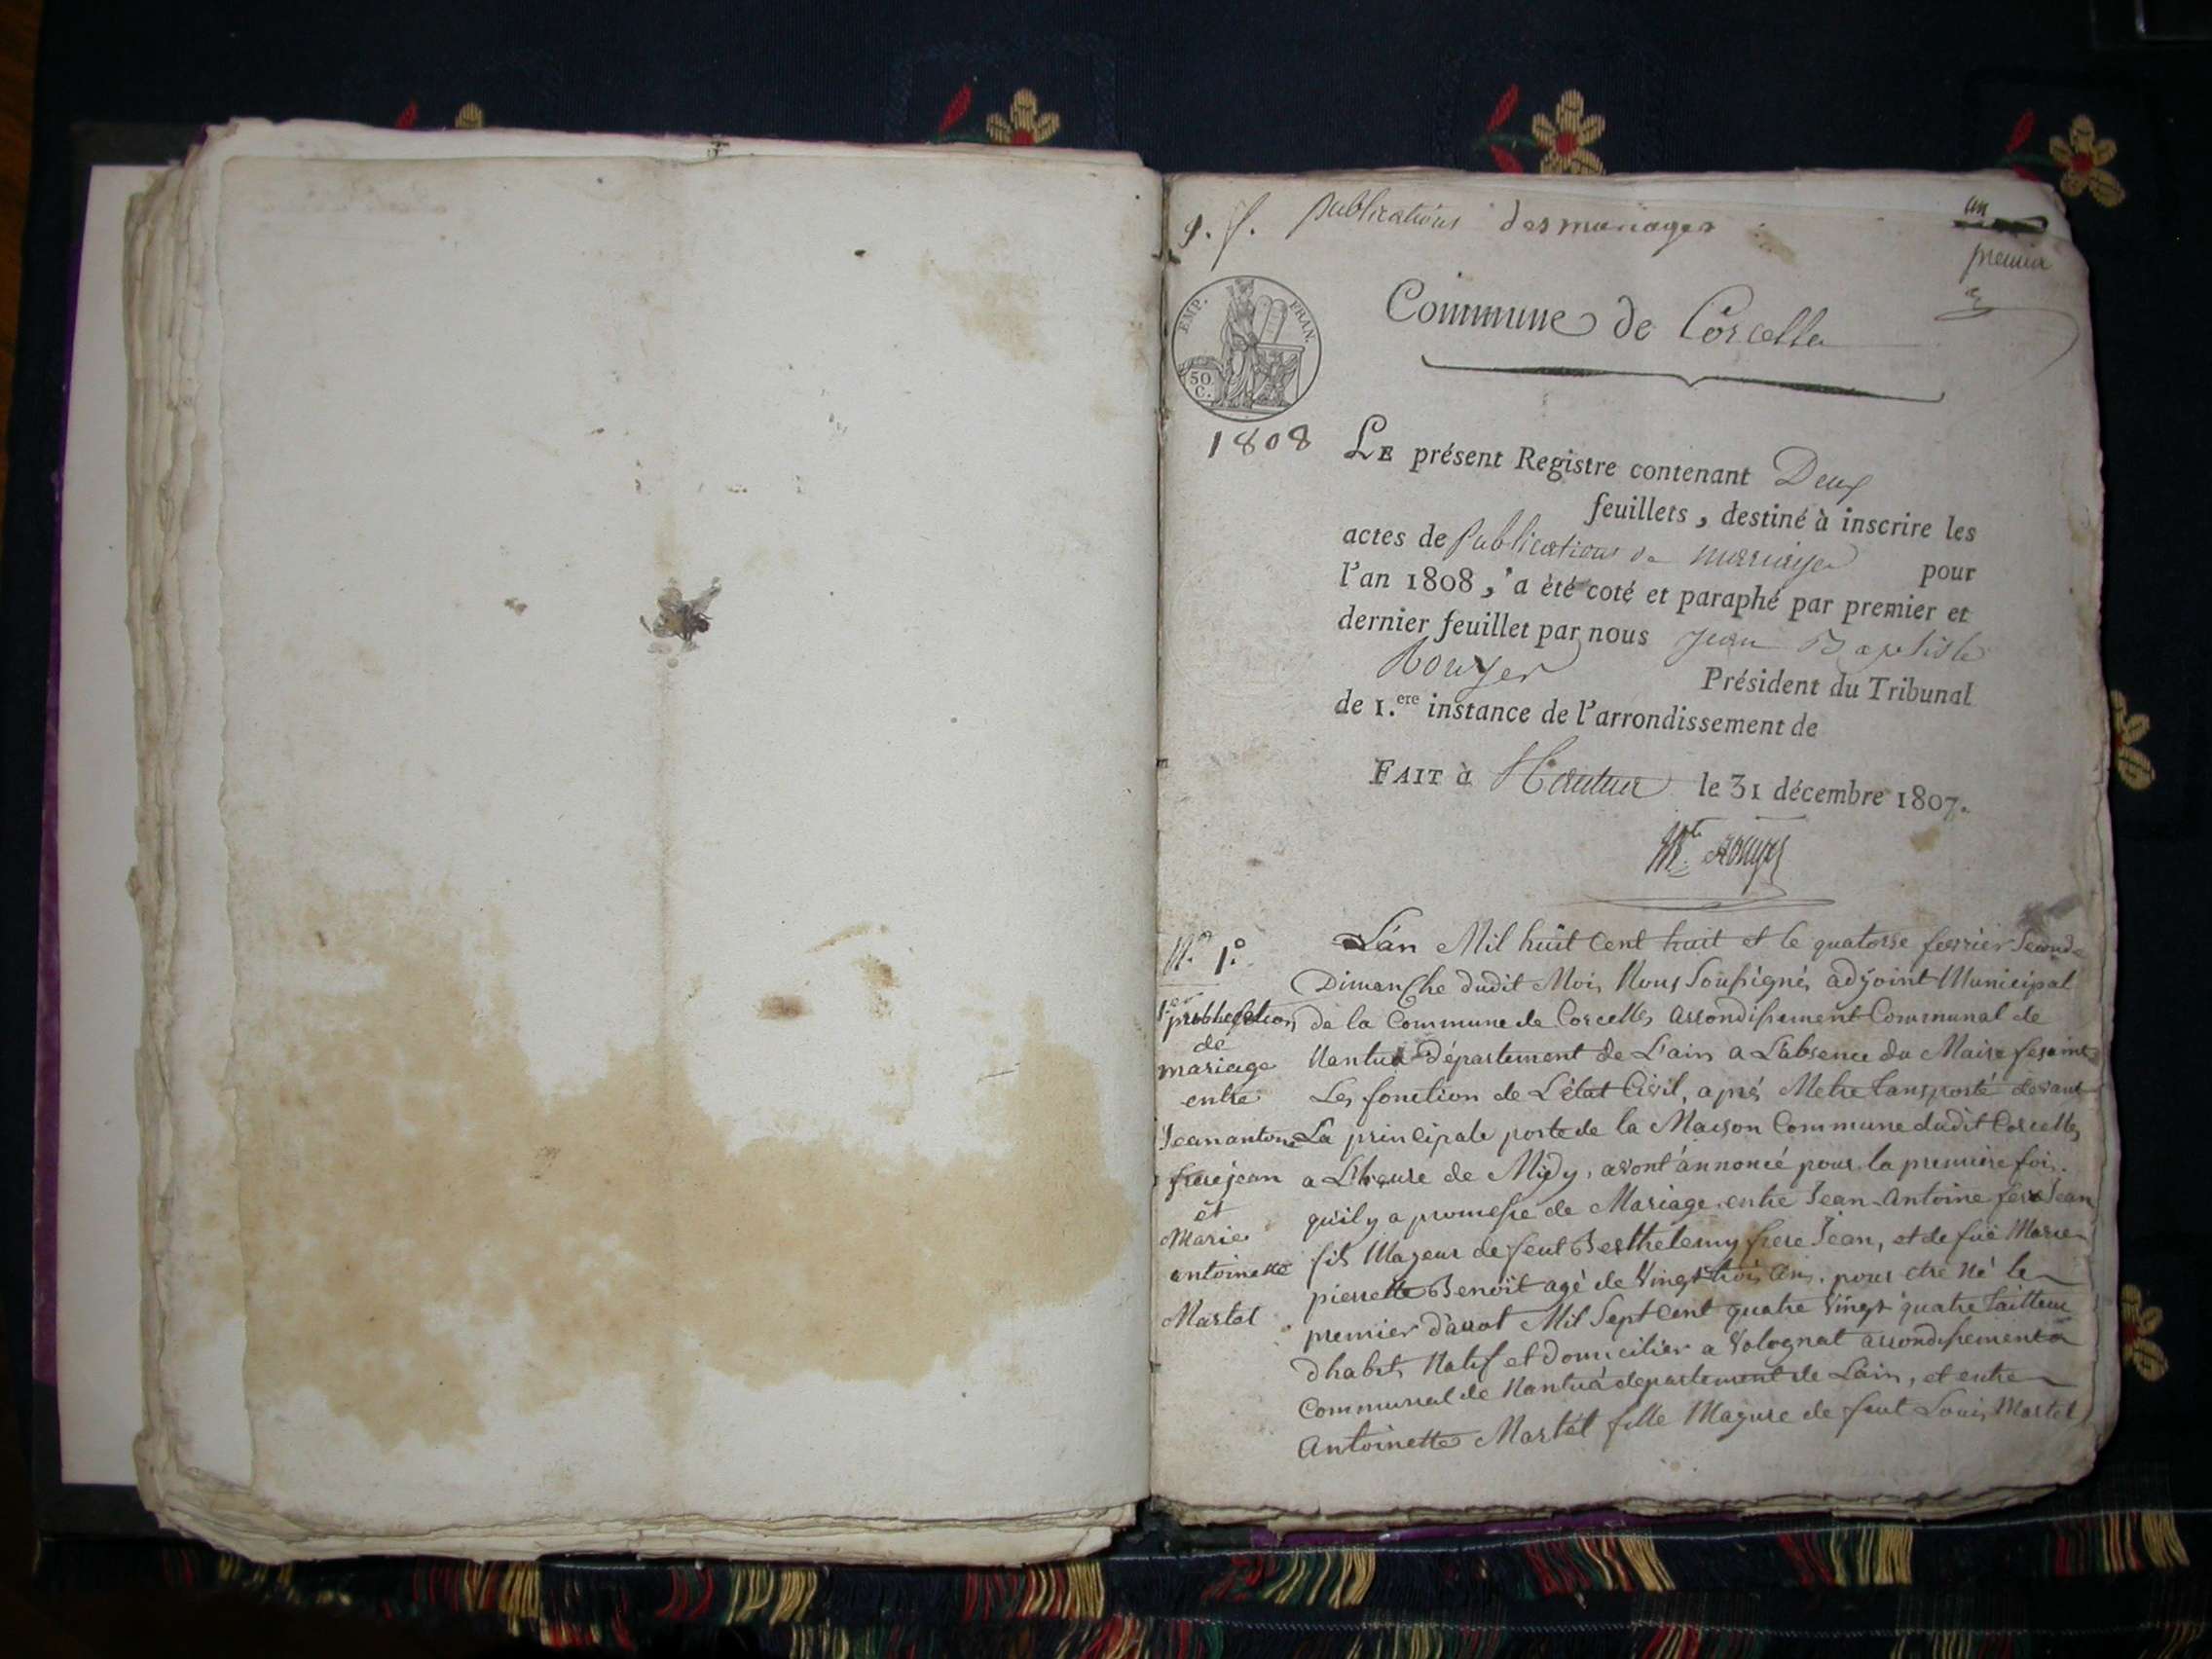 publications des mariages
un
premier
EMP. FRAN.
50
C.
Commune de Corcelle
1808
LE présent Registre contenant Deux
feuillets, destiné à inscrire les
actes de publications de mariages pour
l'an 1808, a été coté et paraphé par premier et
dernier feuillet par nous Jean Baptiste
Rouyer Président du Tribunal
de 1.ere instance de l'arrondissement de
FAIT à Nantua le 31 décembre 1807.
Rouyer
N.o 1.o
1ere publication
de
mariage
entre
Jean antoine
frerejean
et
Marie
antoinette
Martel
L'an Mil huit Cent huit et le quatorse fevrier Second
Dimanche dudit Mois Nous Soussignés adjoint Municipal
de la Commune de Corcelles arrondissement Communal de
Nantua Département de L'ain a L'absence du Maire fesaint
Les fonction de L'état Civil, aprés Metre transporté devant
La principale porte de la Maison Commune dudit Corcelles
a L'heure de Midy, avont annoncé pour la premiere fois
qu'il y a promesse de Mariage entre Jean-Antoine frere Jean
fils Majeur de feut Berthelemy frere Jean, et de fuë Marie
pierrette Benoit agé de Vingt trois ans. pour etre Né le
premier d'auot Mil Sept Cent quatre Vingt quatre tailleur
dhabit, Natif et domicilier a Volognat arrondissement
Communal de Nantua departement de Lain, et entre
Antoinette Martel fille Majeure de feut Louis Martel